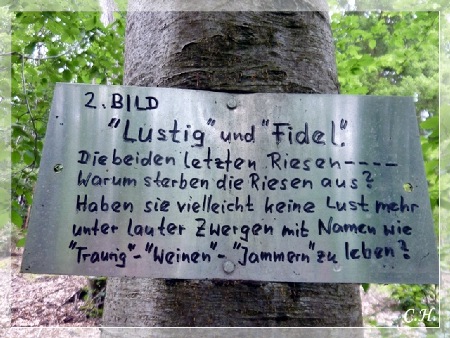 2. BILD
"Lustig" und "Fidel".
Die beiden letzten Riesen----
Warum sterben die Riesen aus?
Haben sie vielleicht keine Lust mehr
unter lauter Zwergen mit Namen wie
"Traurig"-"Weinen"-"Jammern" zu leben?
C.H.